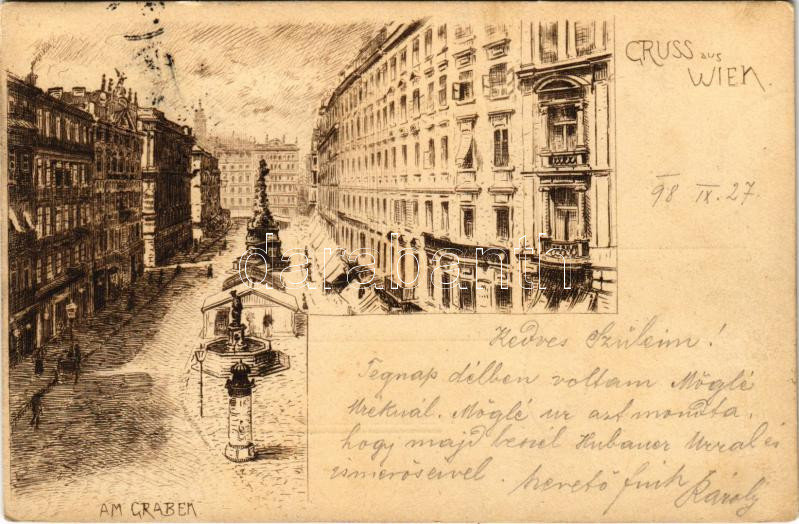 GRUSS aus
WIEN.
98 IX. 27.
darabanth
Kedves Szüleim!
Tegnap délben voltam Möglé
Uréknál. Möglé úr azt mondta,
hogy majd beszél Hubauer Urral és
ismerőseivel. szerető fiuk
Károly
AM GRABEN